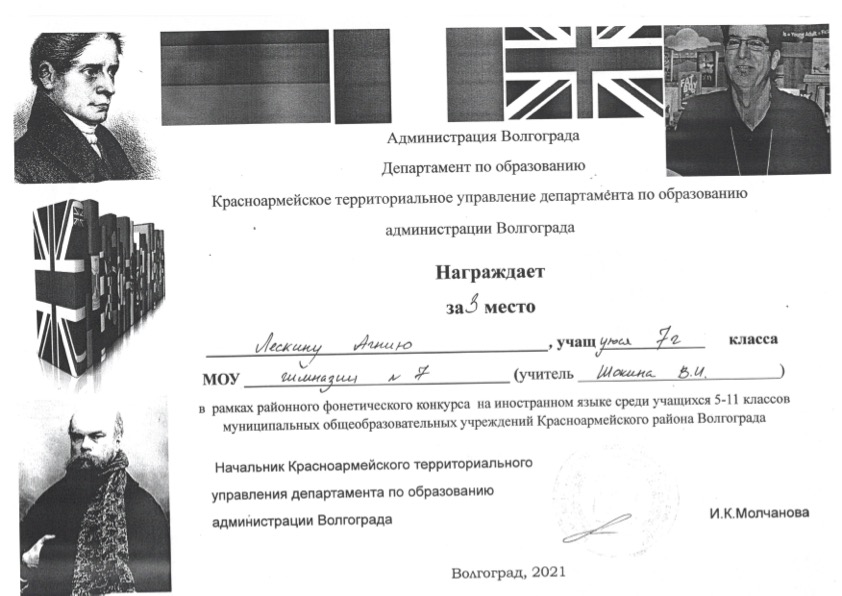 Администрация Волгограда
Департамент по образованию
Красноармейское территориальное управление департамента по образованию
администрации Волгограда
Награждает
за 3 место
Лескину Агнию, учащуюся 7г класса
МОУ гимназии № 7 (учитель Шокина В.И.)
в рамках районного фонетического конкурса на иностранном языке среди учащихся 5-11 классов
муниципальных общеобразовательных учреждений Красноармейского района Волгограда
Начальник Красноармейского территориального
управления департамента по образованию
администрации Волгограда И.К.Молчанова
Волгоград, 2021